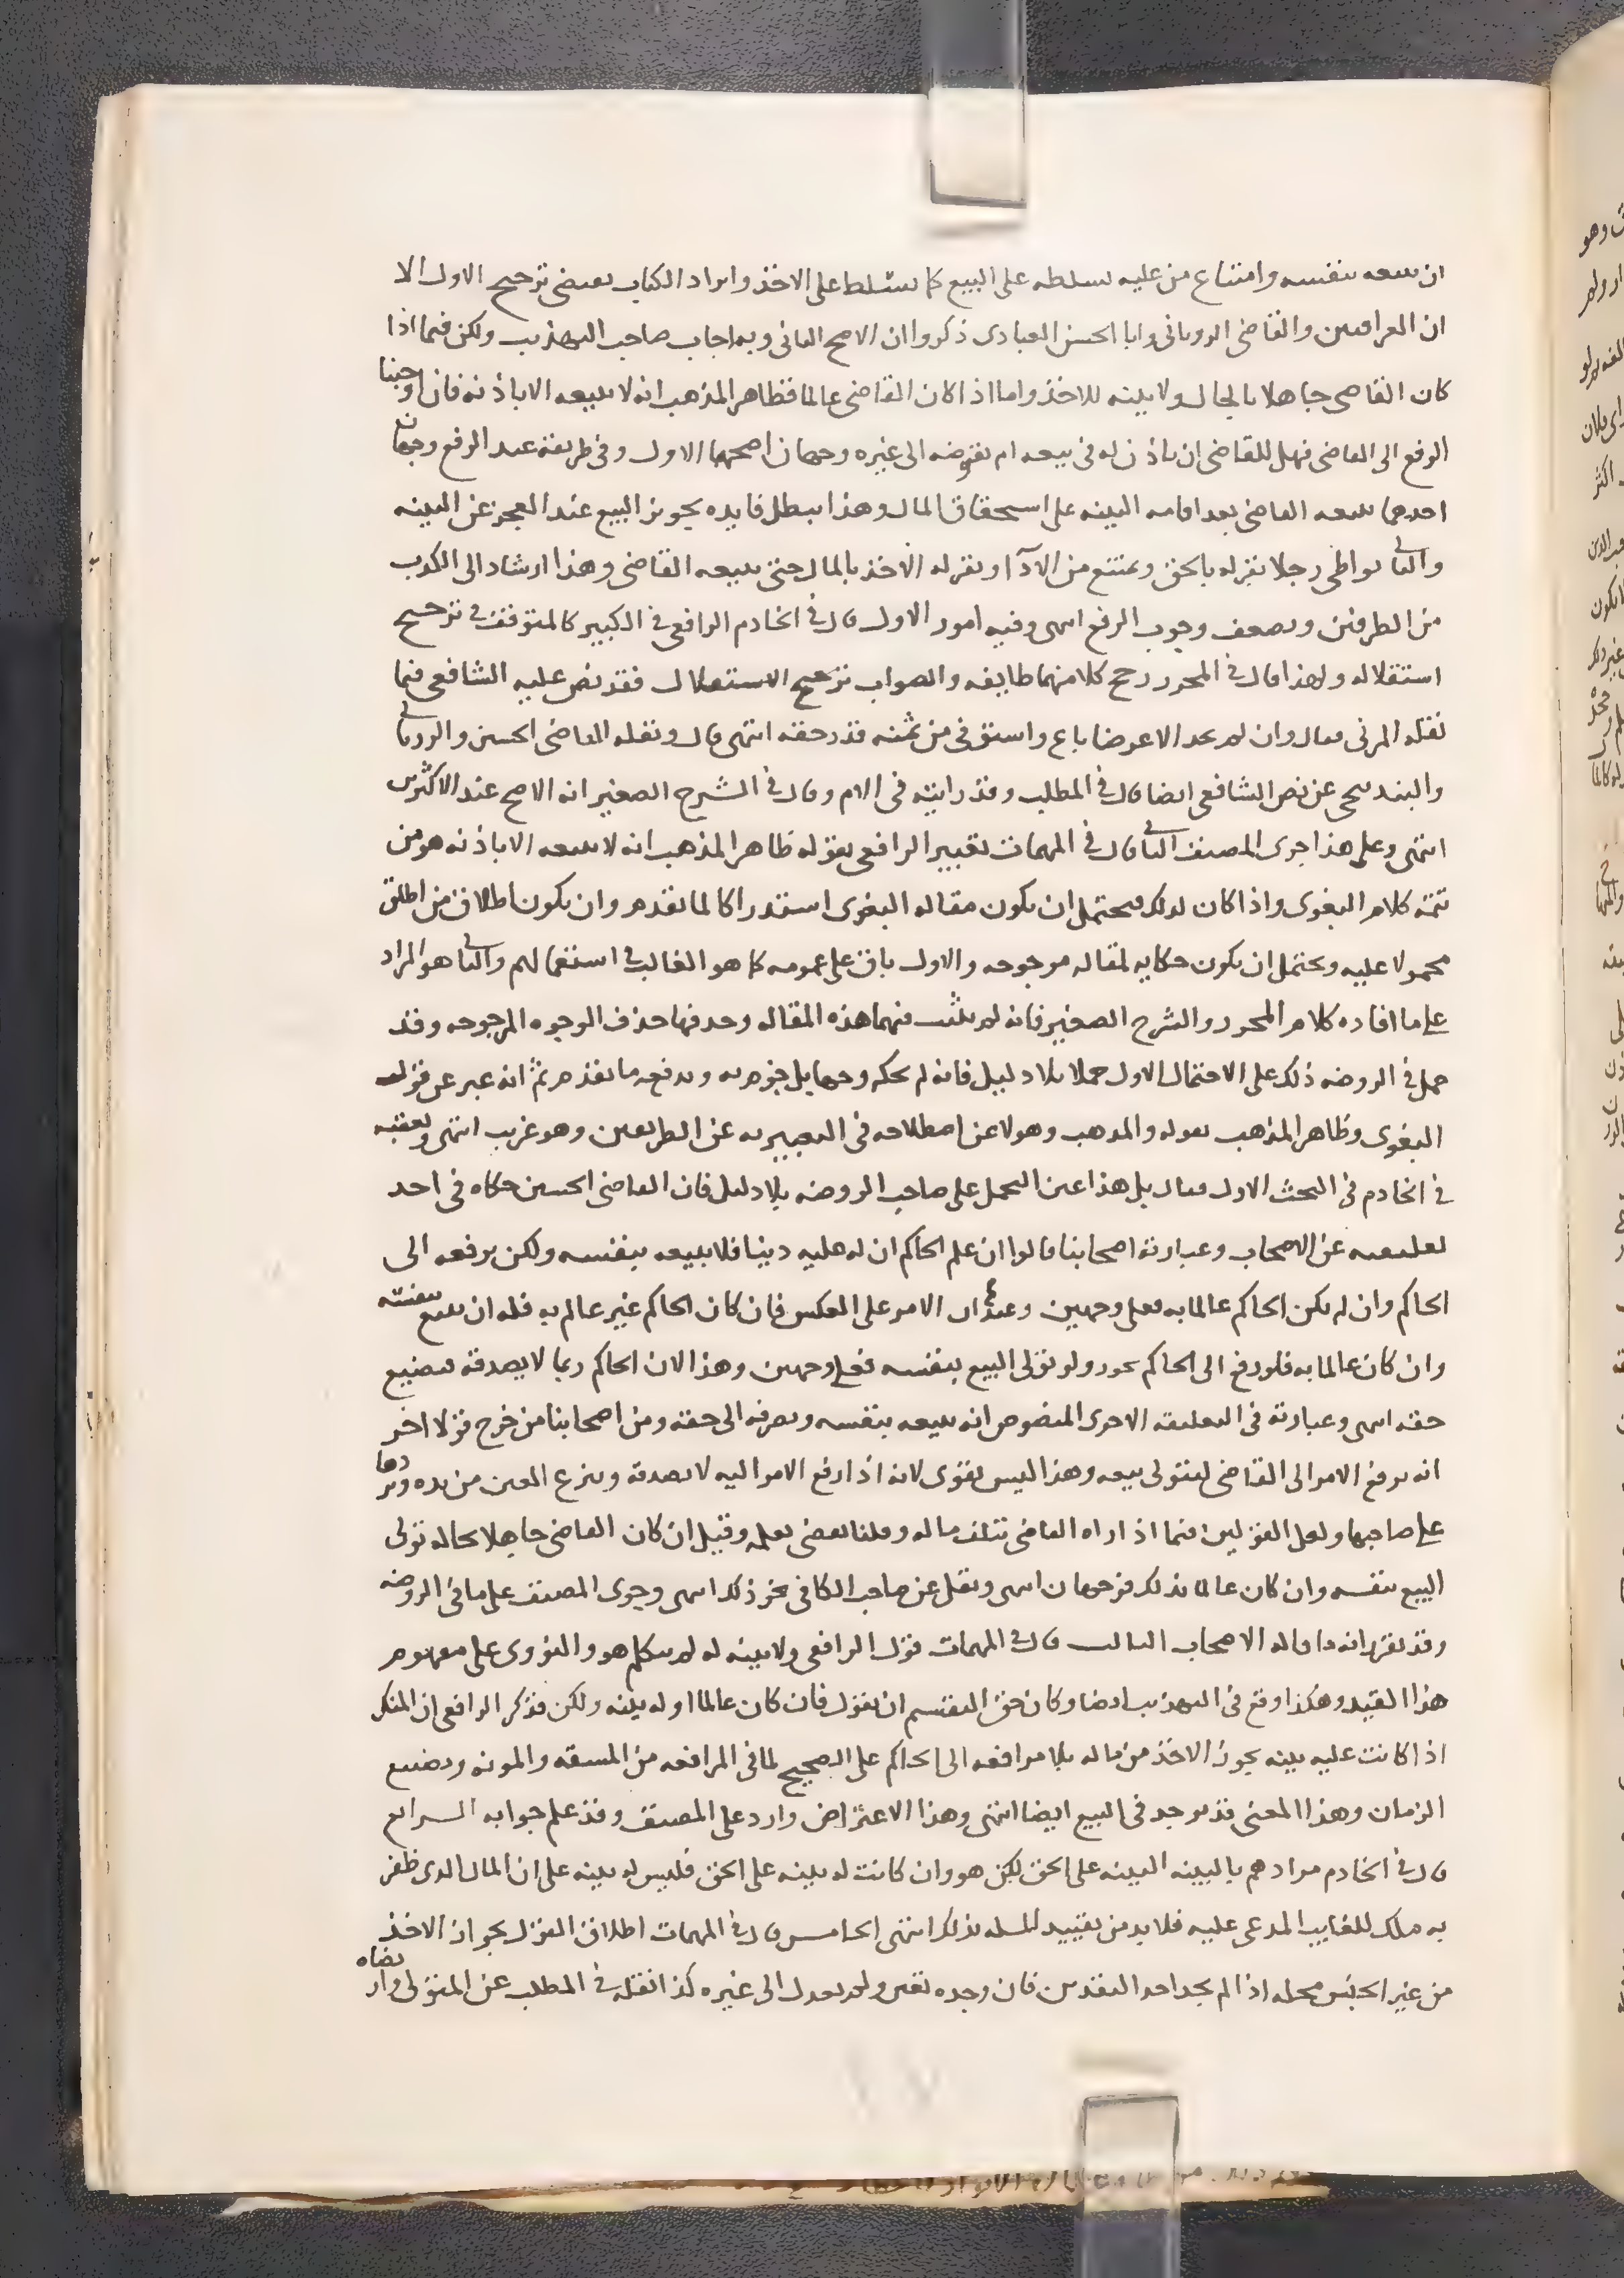 ان يبيعه بنفسه وامتناع من عليه يسلطه على البيع كما يسلط على الاخذ وايراد الكتاب يقتضي ترجيح الاول الا
ان العراقيين والقاضي الروياني وابا الحسن العبادي ذكروا ان الاصح الثاني وبه اجاب صاحب التهذيب ولكن فيما اذا
كان القاضي جاهلا بالحال ولا بينه للاخذ واما اذا كان القاضي عالما فظاهر المذهب انه لا يبيعه الا باذنه فان اوجبنا
الرفع الى القاضي فهل للقاضي ان ياذن له في بيعه ام يفوضه الى غيره وجهان اصحهما الاول وفي طريقة عند الرفع وجهان
احدهما يبيعه القاضي بعد اقامه البينه على استحقاق المال وهذا يبطل فايده تجويز البيع عند العجز عن البينه
والثاني يواطي رجلا يقر له بالحق ويمتنع من الادآ او يقر له الاخذ بالمال حتى يبيعه القاضي وهذا ارشاد الى الكذب
من الطرفين ويضعف وجوب الرفع انتهى وفيه امور الاول قال في الخادم الرافعي في الكبير كالمتوقف في ترجيح
استقلاله ولهذا قال في المحرر رجح كلا منهما طايفه والصواب ترجيح الاستقلال فقد نص عليه الشافعي فيما
نقله المزني فقال وان لم يجد الا عرضا باع واستوفى من ثمنه قدر حقه انتهى قال ونقله القاضي الحسين والروياني
والبندنيجي عن نص الشافعي ايضا قال في المطلب وقد رايته في الام وقال في الشرح الصغير انه الاصح عند الاكثرين
انتهى وعلى هذا جرى المصنف الثاني قال في المهمات تعبير الرافعي بقوله ظاهر المذهب انه لا يبيعه الا باذنه هو من
تتمة كلام البغوي واذا كان كذلك فيحتمل ان يكون مقاله البغوي استدراكا لما تقدم وان يكون اطلاق من اطلق
محمولا عليه ويحتمل ان يكون حكايه لمقاله مرجوحه والاول باق على عمومه كما هو الغالب في استعمالهم والثاني هو المراد
على ما افاده كلام المحرر والشرح الصغير فانه لم يثبت فيهما هذه المقاله وحذفها حذف الوجوه المرجوحه وقد
حمل في الروضه ذلك على الاحتمال الاول حملا بلا دليل فانه لم يحكه وجها بل جزم به ويدفعه ما تقدم ثم انه عبر عن قول
البغوي وظاهر المذهب بقوله والمذهب وهو لا عن اصطلاحه في التعبير به عن الطريقين وهو غريب انتهى وتعقبه
في الخادم في البحث الاول فقال بل هذا عين التحمل على صاحب الروضه بلا دليل فان القاضي الحسين حكاه في احد
تعليقيه عن الاصحاب وعبارته اصحابنا قالوا ان علم الحاكم ان له عليه دينا فلا يبيعه بنفسه ولكن يرفعه الى
الحاكم وان لم يكن الحاكم عالما به فعلى وجهين وعندي ان الامر على العكس فان كان الحاكم غير عالم به فله ان يبيع بنفسه
وان كان عالما به فلو رفع الى الحاكم يجوز ولو تولى البيع بنفسه فعلى وجهين وهذا لان الحاكم ربما لا يصدقه فيضيع
حقه انتهى وعبارته في التعليقه الاخرى المنصوص انه يبيعه بنفسه ويصرفه الى حقه ومن اصحابنا من خرج قولا اخر
انه يرفع الامر الى القاضي ليتولى بيعه وهذا ليس بقوي لانه اذا رفع الامر اليه لا يصدقه وينزع العين من يده ويردها
على صاحبها ولعل القولين فيما اذا اراه القاضي تتلف ماله وقلنا يقضي بعلمه وقيل ان كان القاضي جاهلا بحاله تولى
البيع بنفسه وان كان عالما بذلك فوجهان انتهى ونقل عن صاحب الكافي نحو ذلك انتهى وجرى المصنف على ما في الروضه
وقد تقرر انه ما قاله الاصحاب الثالث قال في المهمات قول الرافعي ولا بينه له لم يتكلم هو والنووي على مفهوم
هذا القيد وهكذا وقع في التهذيب ايضا وكان حق التقسيم ان يقول فان كان عالما او له بينه ولكن قد ذكر الرافعي ان المنكر
اذا كانت عليه بينه يجوز الاخذ من ماله بلا مرافعه الى الحاكم على الصحيح لما في المرافعه من المشقه والمونه وتضييع
الزمان وهذا المعنى قد يوجد في البيع ايضا انتهى وهذا الاعتراض وارد على المصنف وقد علم جوابه الرابع
قال في الخادم مرادهم بالبينه البينه على الحق لكن هو وان كانت له بينه على الحق فليس له بينه على ان المال الذي ظفر
به ملك للغايب المدعى عليه فلا بد من تقييد المسله بذلك انتهى الخامس قال في المهمات اطلاق القول بجواز الاخذ
من غير الجنس محله اذا لم يجد احد النقدين فان وجده تعين ولم يعدل الى غيره كذا نقله في المطلب عن المتولي وارتضاه